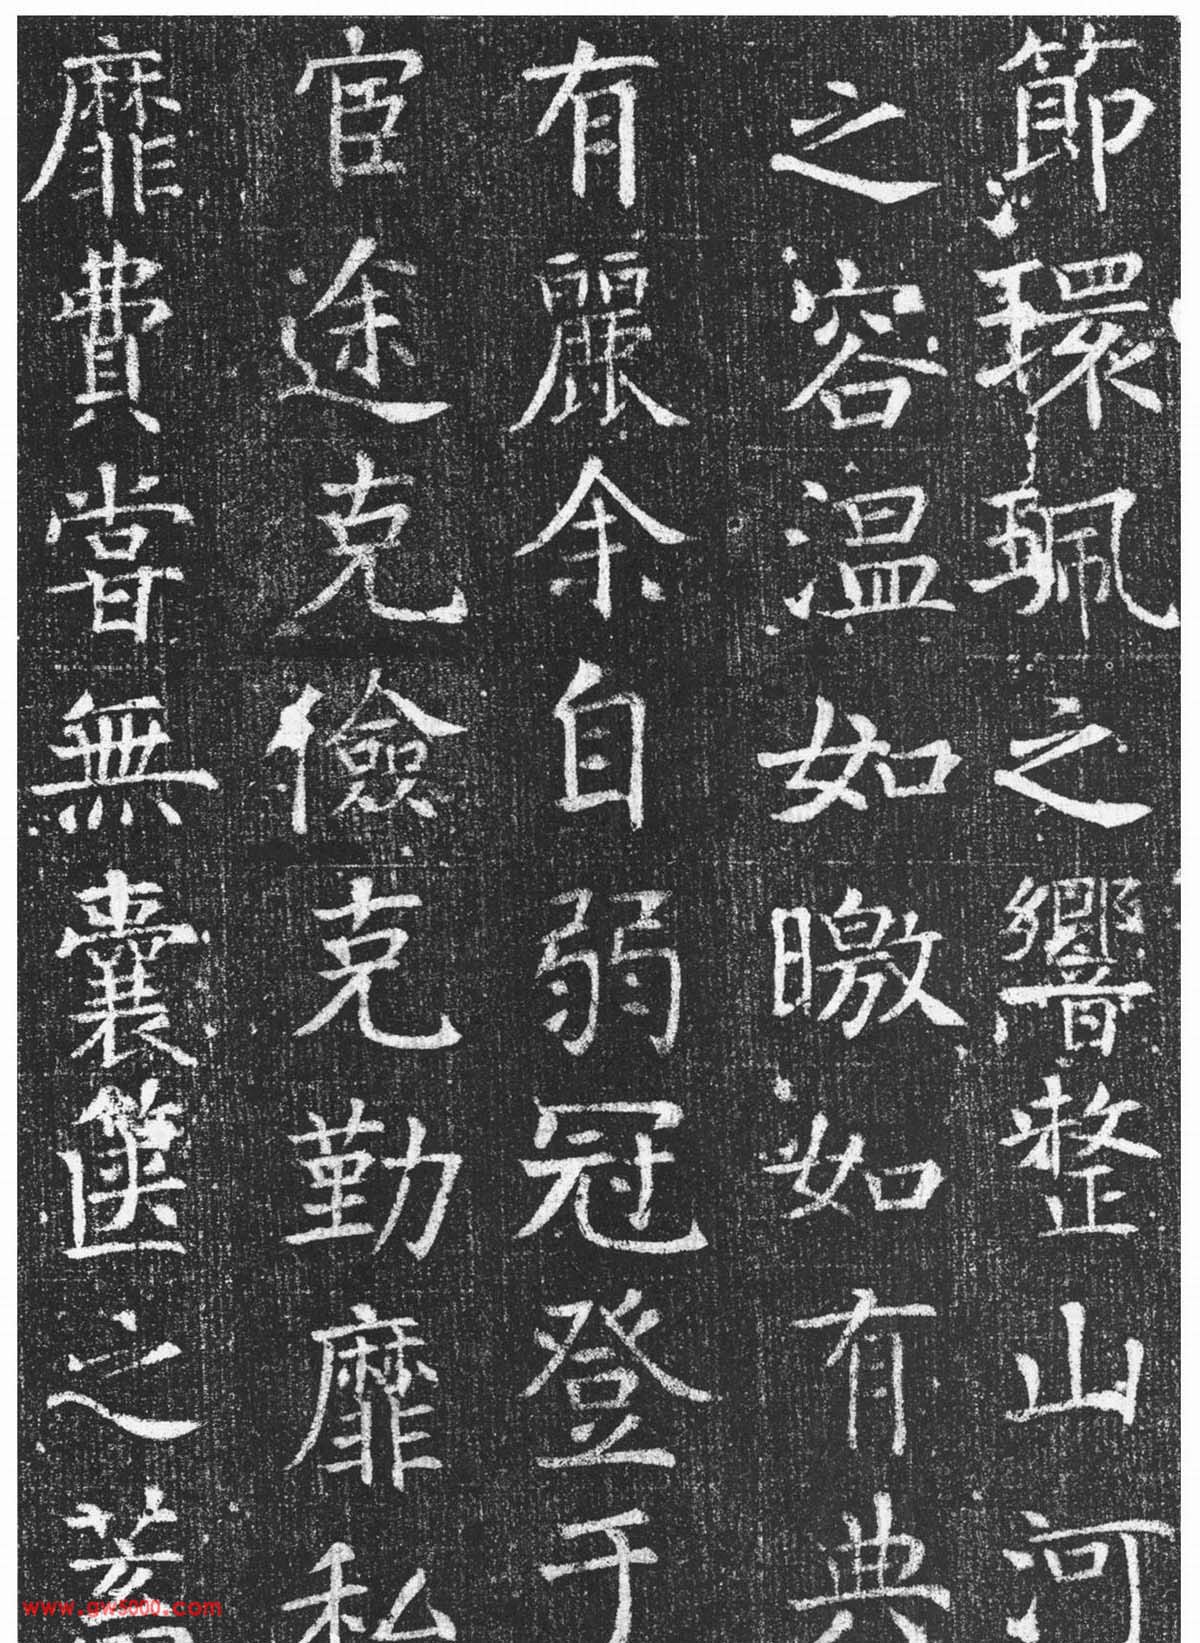 節環珮之響整山河
之容温如曒如有典
有麗余自弱冠登于
宦途克儉克勤靡私
靡費嘗無囊篋之蓄
www.gw5000.com